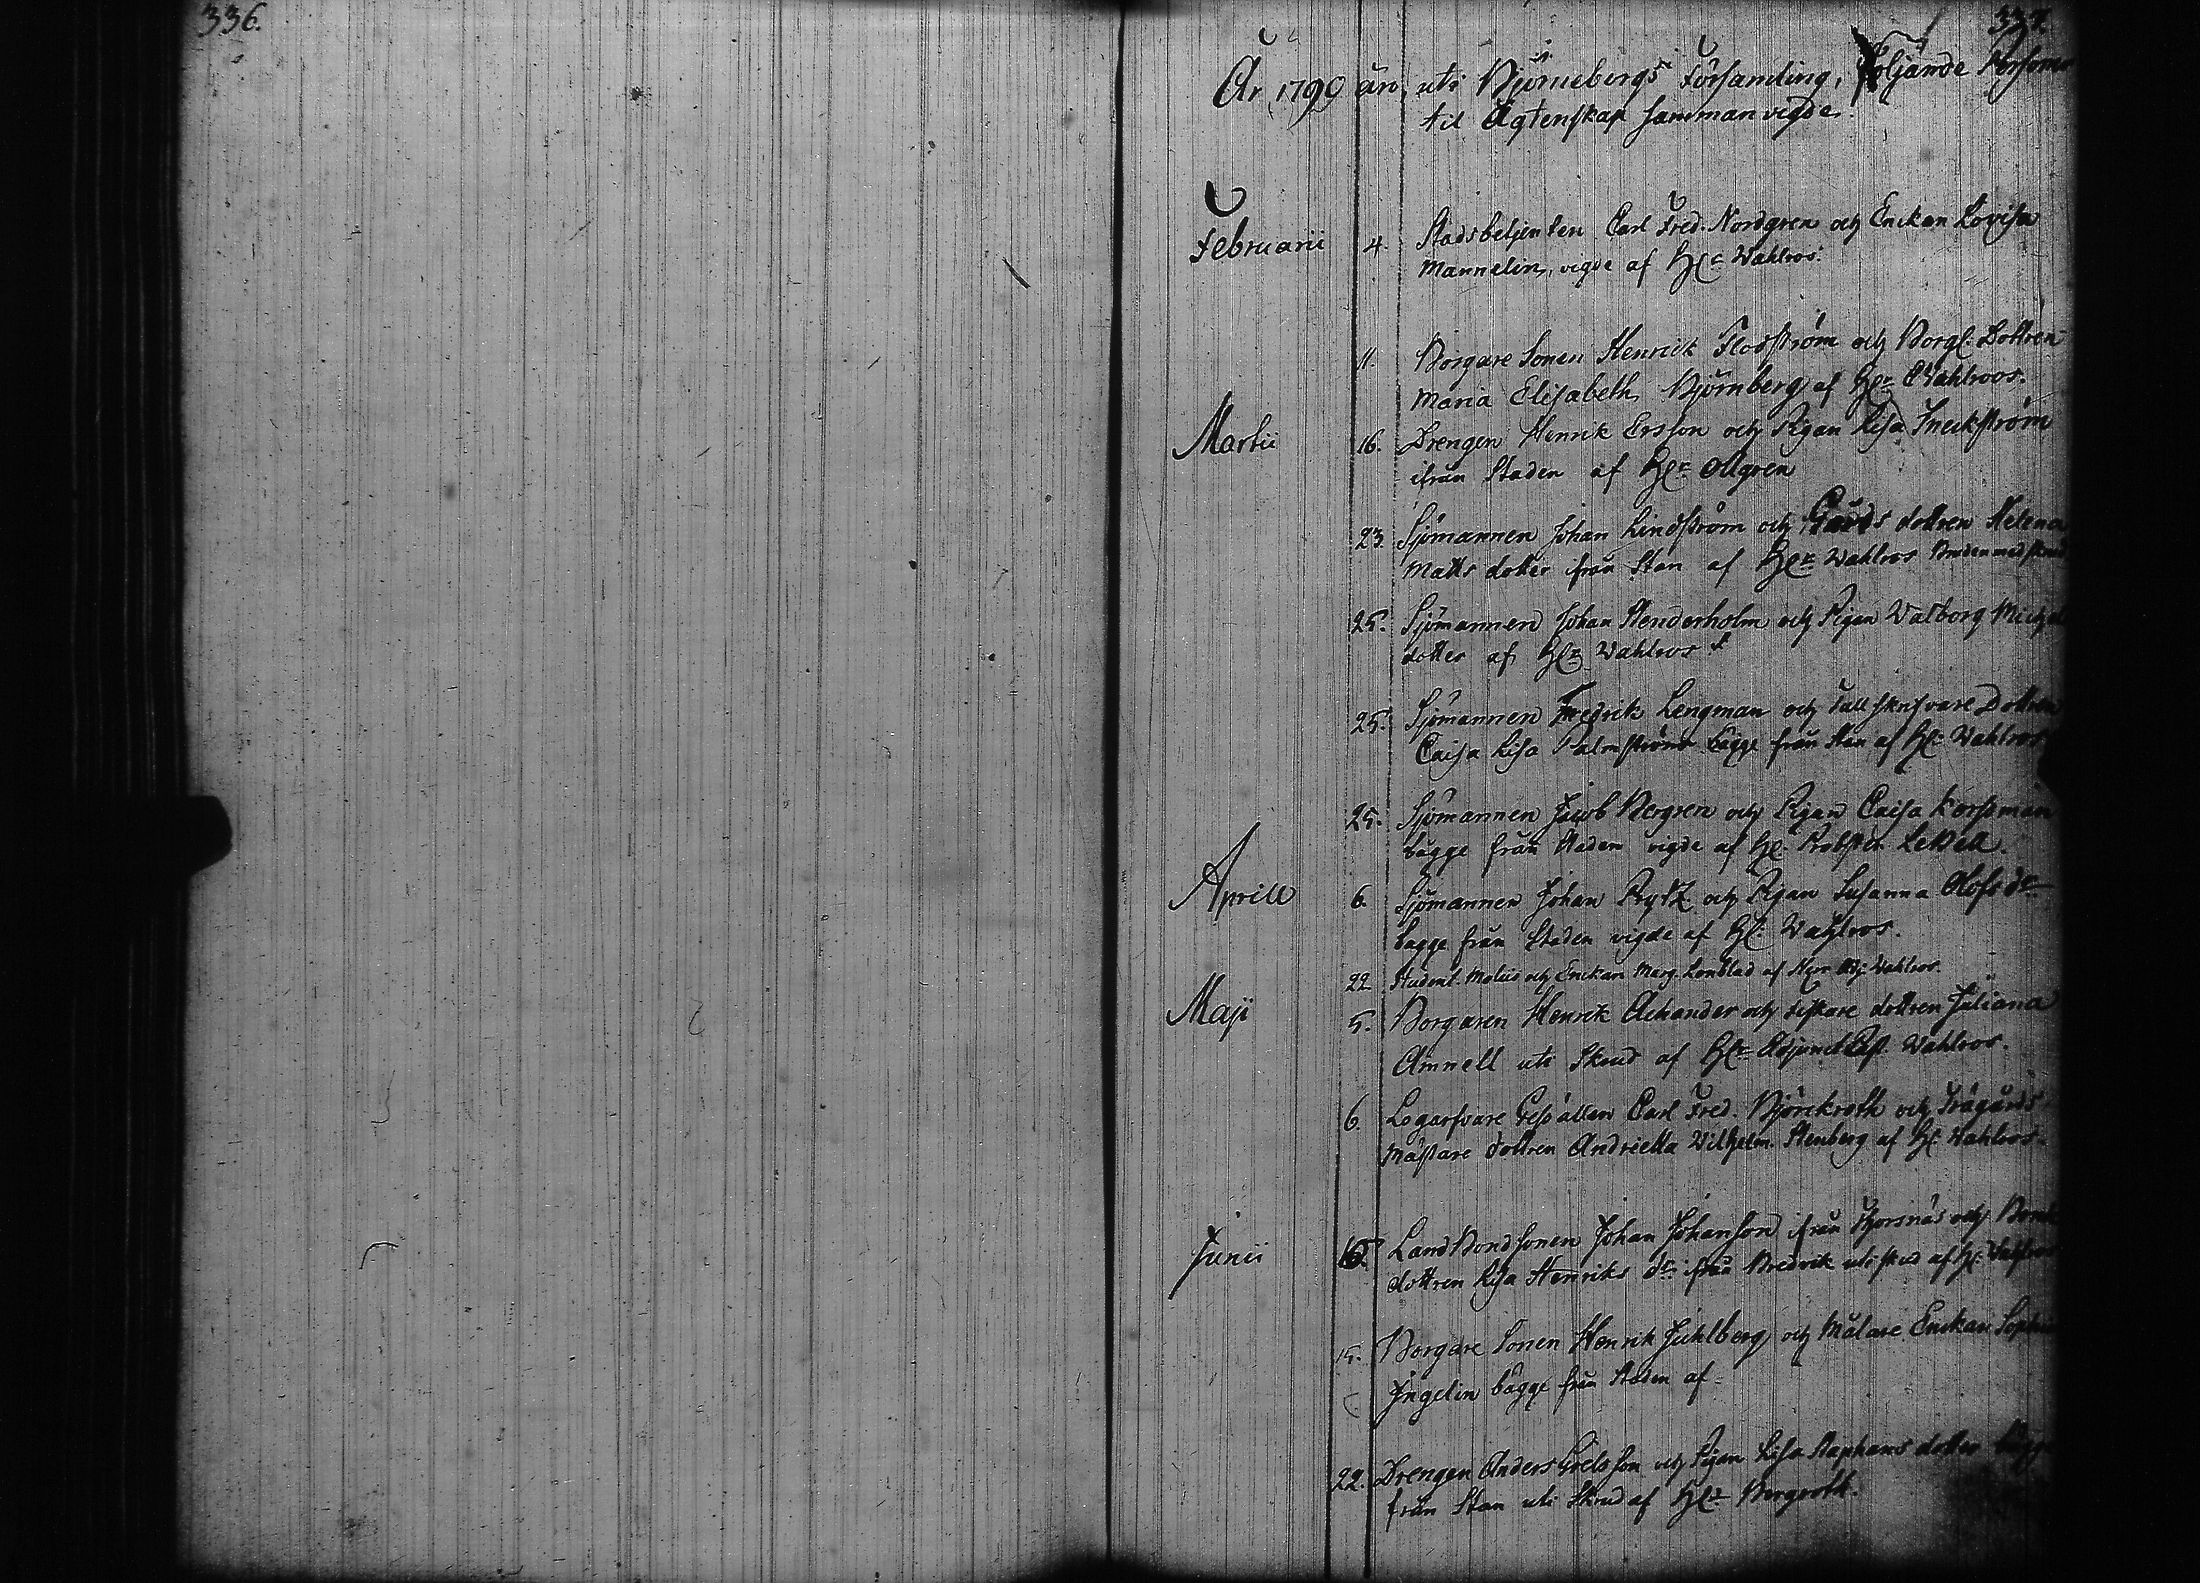 336.
337.
År 1790 äro, uti Björneborgs Församling, Följande Personer
til Ägtenskap sammanvigde.
Februarii 4. Stadsbetjenten Carl Fred. Nordgren och Enckan Lovisa
Mannelin, vigde af H:r Wahlroos.
11. Borgare Sonen Henrick Flodström och Borg. Dottren
Maria Elisabeth Björnberg af H:r Wahlroos.
Martii 16. Drengen Henrik Ersson och Pigan Lisa
ifrån Staden af H:r Ollgren
23. Sjömannen Johan Lindström och dottren Helena
Matts dotter från Stan af H:r Wahlros Bruden med skrud
25. Sjömannen Johan Stenderholm och Pigan Walborg Michels
dotter af H:r Wahlros
25. Sjömannen Fredrik Lengman och Tullskrifvare Dottren
Caisa Lisa Palmström bägge från Stan af H:r Wahlros
25. Sjömannen Jacob Bergren och Pigan Caisa Forssman
bägge från Staden vigde af H:r Probsten Lebell.
Aprill 6. Sjömannen Johan Prytz och Pigan Susanna Olofs d:r
bägge från Staden vigde af H:r Wahlros.
22 Student. Moliis och Enckan Marg. Lonblad af Herr Adj. Wahlros.
Maji 5. Borgaren Henrik Achander och Fiskare dottren Juliana
Amnell uti Skrud af H:r Adjunct Wahlros.
6. Logarfvare Gesällen Carl Fred. Björckroth och Trägårds
Mästare dottren Andrietta Wilhelm. Stenberg af H:r Wahlros.
Junii 15 LandBondsonen Johan Johanson ifrån Thorsnäs och Bonde
dottren Lisa Henriks d:r ifrån Bredvik uti skrud af H:r Wahlros
15. Borgare Sonen Henrik Juhlberg och Målare Enckan Sophia
Ingelin bägge från Staden af
22. Drengen Anders Grels Son och Pigan Lisa Staphans dotter bägge
från Stan uti Skrud af H:r Bergroth.